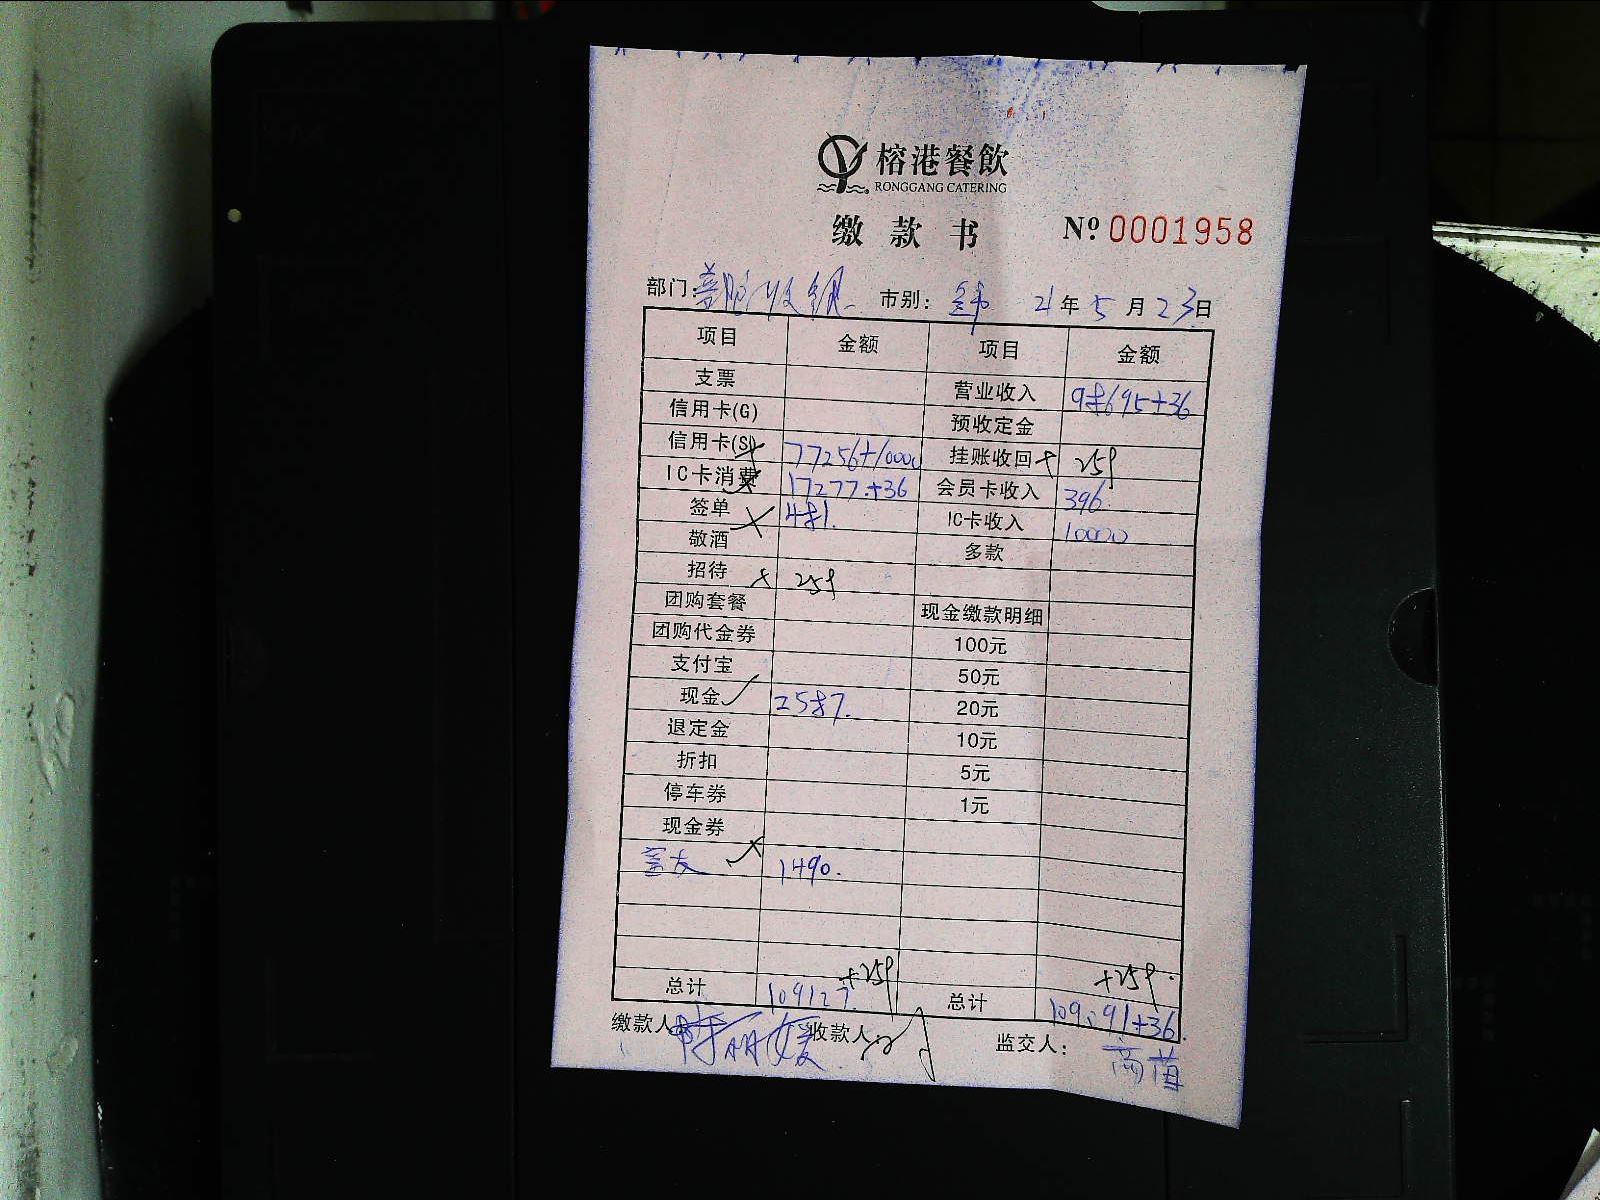 榕港餐飲
RONGGANG CATERING
缴款书 Nº 0001958
部门: 市别: 21年5月23日
项目 金额 项目 金额
支票 营业收入 98695+36
信用卡(G) 预收定金
信用卡(S) 77256+10000 挂账收回 259
IC卡消费 17277.+36 会员卡收入 396.
签单 481. IC卡收入 10000
敬酒 多款
招待 259
团购套餐 现金缴款明细
团购代金券 100元
支付宝 50元
现金 2587. 20元
退定金 10元
折扣 5元
停车券 1元
现金券
1490.
+259 +259.
总计 109127. 总计 109091+36
缴款人: 收款人: 监交人: